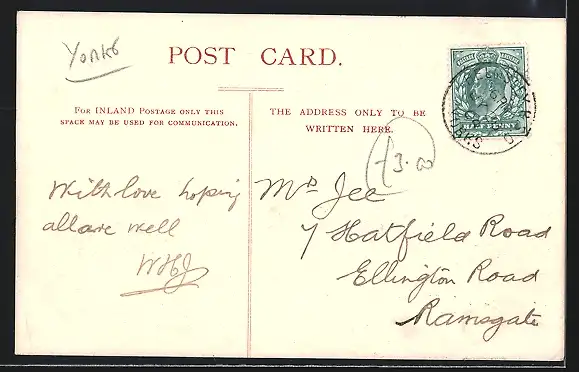 Yorks
POST CARD.
FOR INLAND POSTAGE ONLY THIS
SPACE MAY BE USED FOR COMMUNICATION.
THE ADDRESS ONLY TO BE
WRITTEN HERE.
3.00
With love hoping
all are well
WHJ
Mrs Jee
7 Hatfield Road
Ellington Road
Ramsgate
HALFPENNY